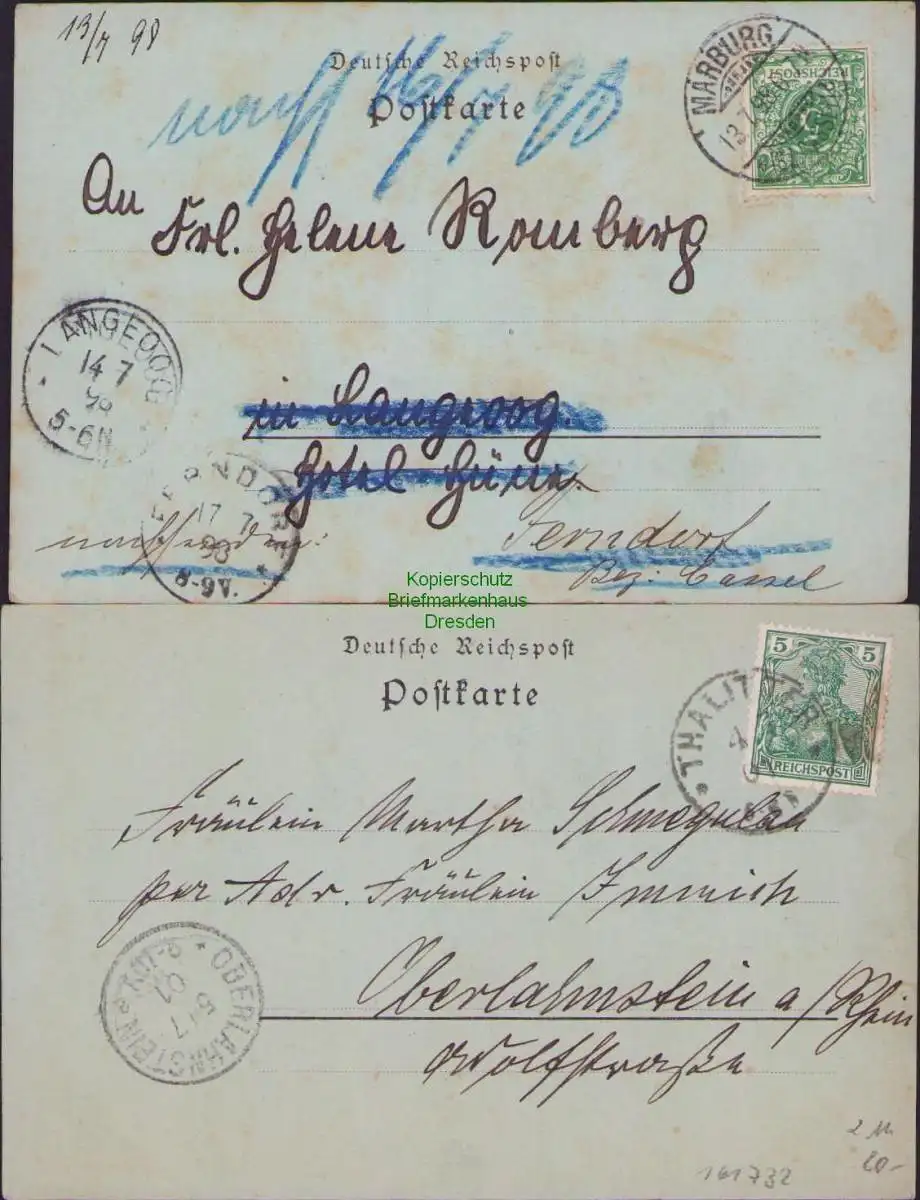 13/7 98
Deutsche Reichspost
Postkarte
nach 16/7 98
MARBURG
REICHSPOST
An
Frl. Helene Romberg
LANGEOOG
14 7
98
5-6N
in Langeoog.
Hotel
17 7
98
nachsenden:
Ferndorf
Bez: Cassel
Kopierschutz
Briefmarkenhaus
Dresden
Deutsche Reichspost
Postkarte
5 5
REICHSPOST
THALITTER
4
Fräulein Martha
per Adr. Fräulein Immich
Oberlahnstein a/Rhein
Wolfstraße
OBERLAHNSTEIN
5 7
01
161732
20-